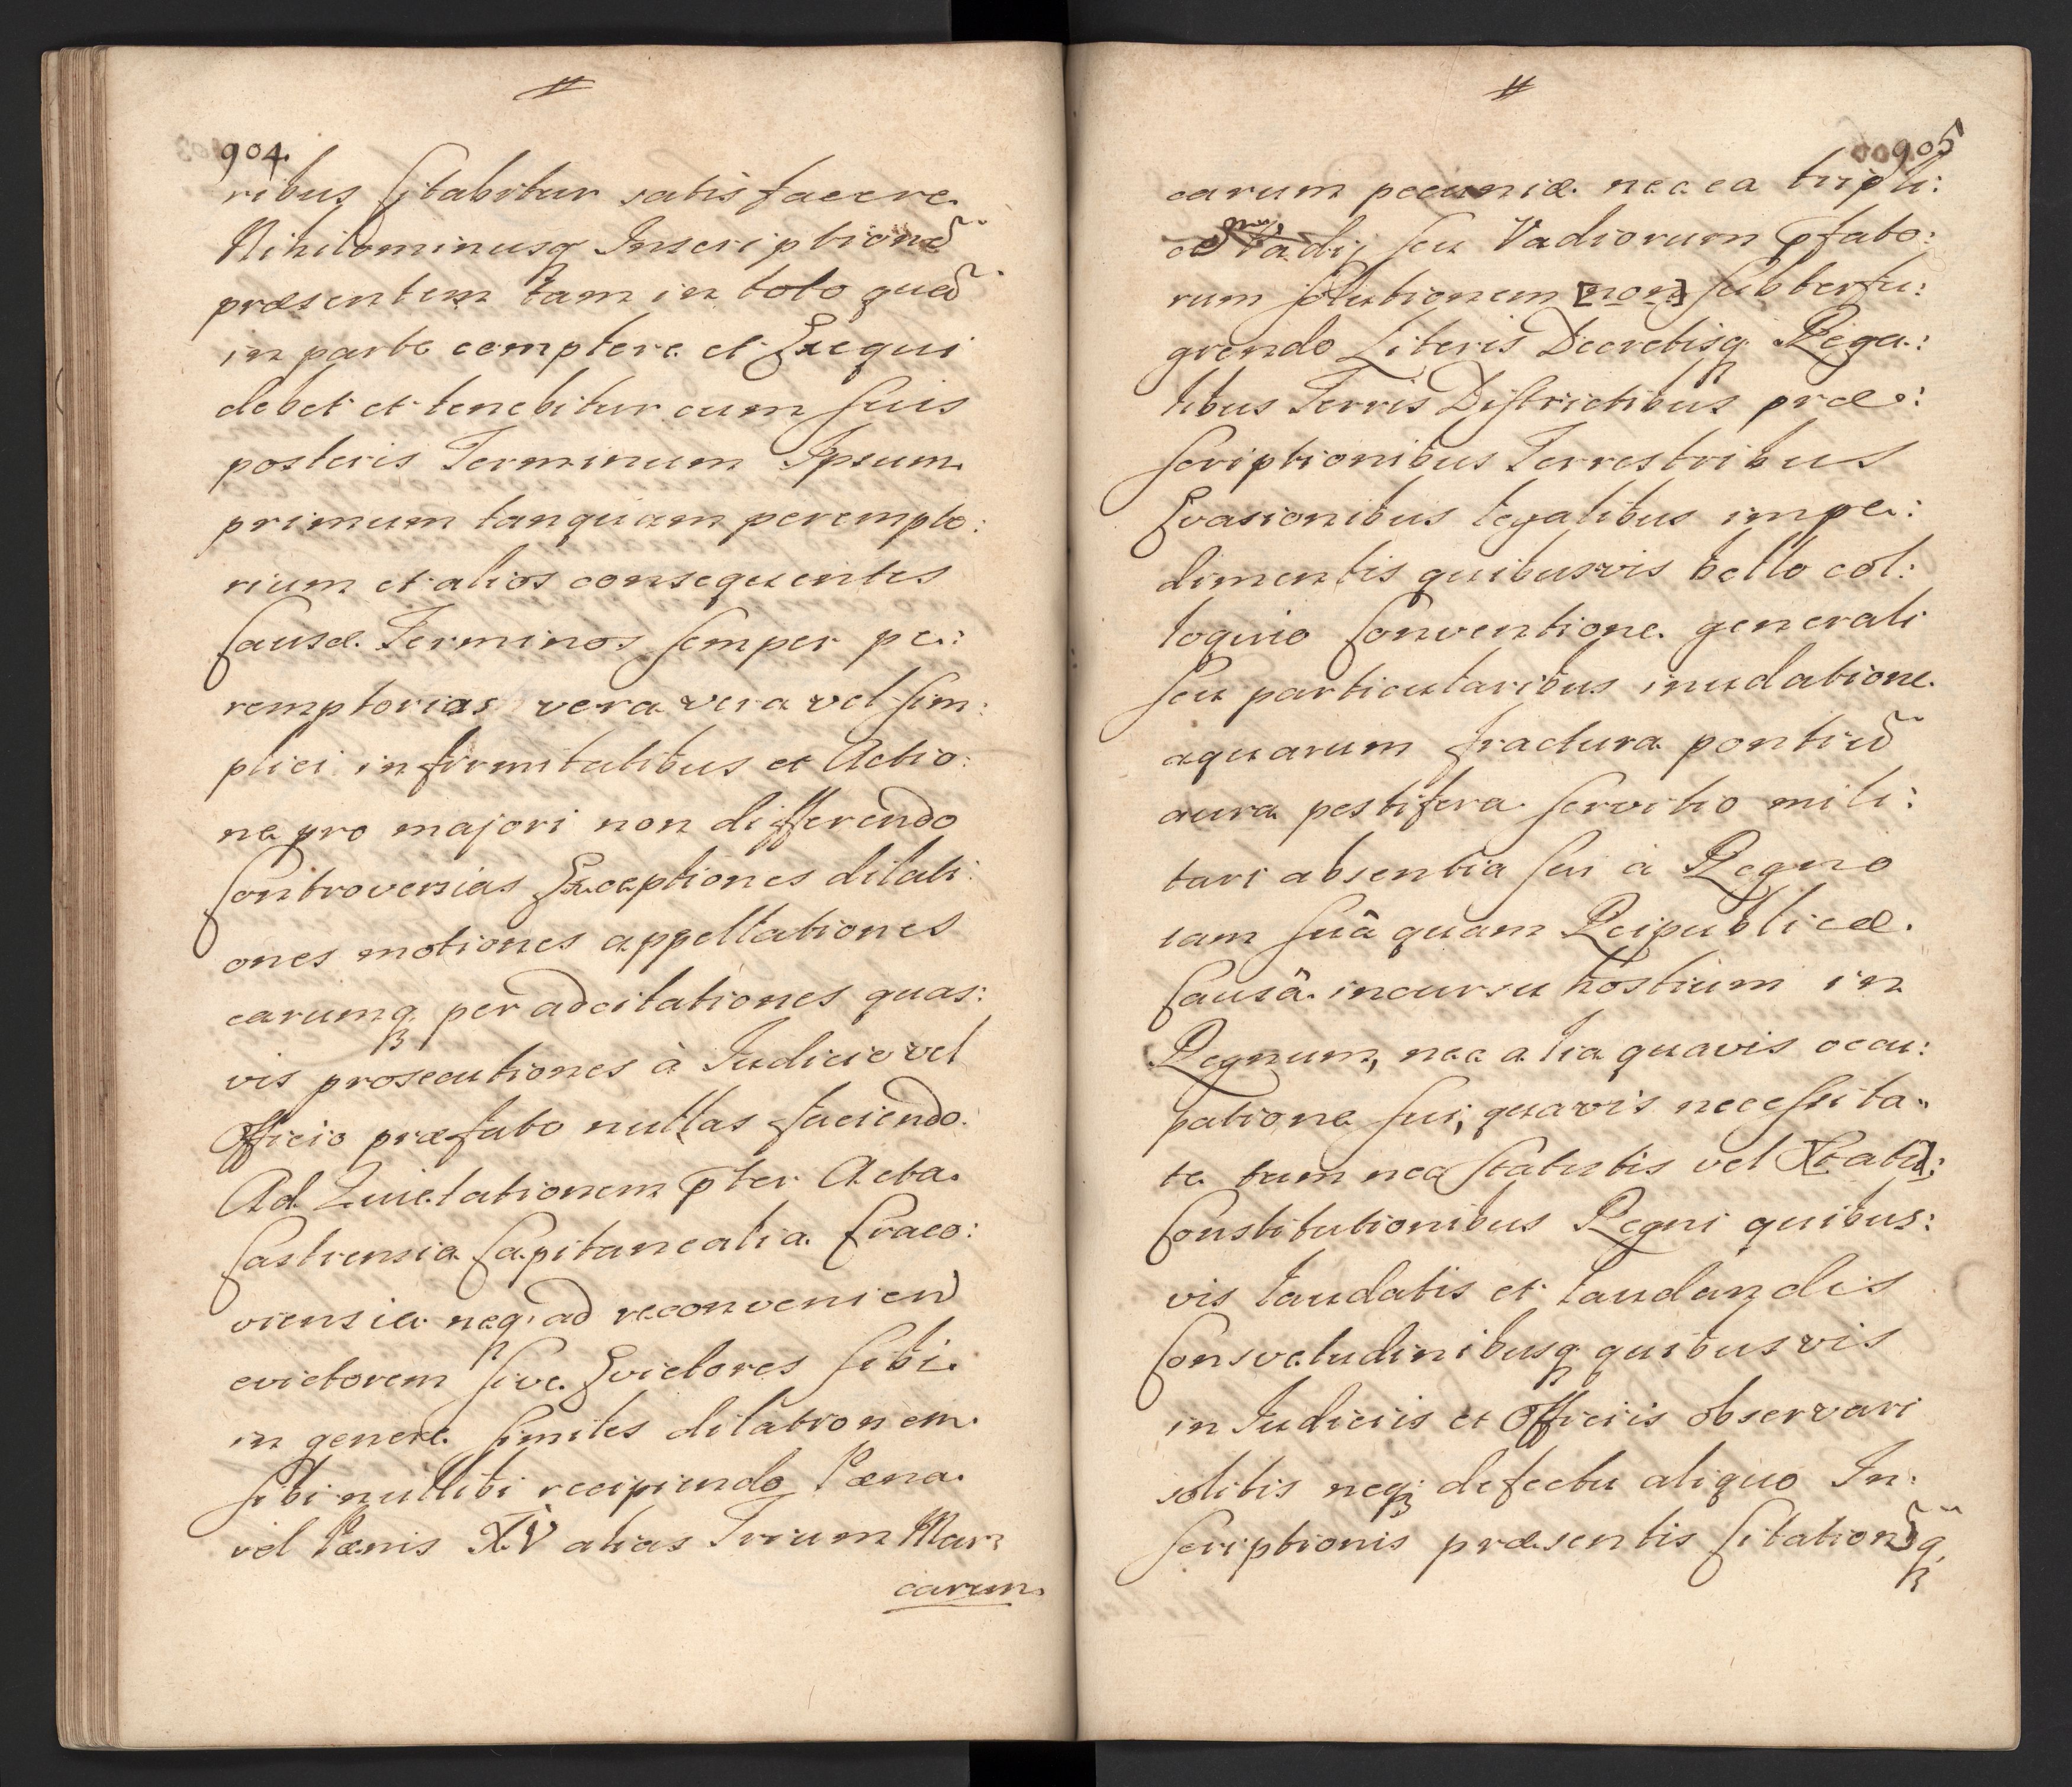 904.
ribus Citabitur satis facere.
Nihilominusq Inscriptionẽ
præsentem tam in toto quã
in parte complere et Exequi
debet et tenebitur cum suis
posteris Terminum Ipsum
primum tanquam perempto:
rium et alios consequentes
Causæ Terminos semper pe:
remptorias vera vera vel sim:
plici infirmitatibus et Actio:
ne pro majori non differendo
Controversias Exceptiones dilati:
ones motiones appellationes
earumq per adcitationes quas:
vis prosecutiones à Iudicio vel
Officio præfato nullas faciendo.
Ad Quietationem pter Acta
Castrensia Capitanealia Craco:
viensia neq ad reconvenien
evictorem sive Evictores sibi
in genere similes dilationem
sibi nullibi recipiendo Pæna
vel Pænis XV alias Trium Mar:
carum
905
carum pecuniæ nec ea tripli:
ce Vadij seu Vadiorum pfato:
rum solutionem [non] subterfu:
giendo Literis Decretisq Rega:
libus Terris Districtibus præ:
scriptionibus Terrestribus
Evasionibus legalibus impe:
dimentis quibusvis bello col:
loquio Conventione generali
seu particularibus inudatione
aquarum fractura pontiũ
aura pestifera servitio mili:
tari absentia sui à Regno
tam suâ quam Reipublicæ
Causâ incursu hostium in
Regnum, nec alia quavis occu:
patione sui, quavis necessita:
te tum nec statutis vel [Statu]:
Constitutionibus Regni quibus:
vis laudatis et laudandis
Consvetudinibusq quibusvis
in Iudiciis et Officiis observari
solitis neq defectu aliquo In:
scriptionis præsentis Citationẽq